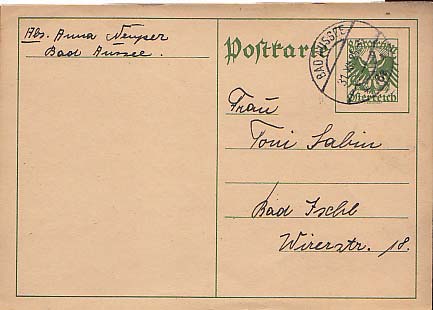 Abs. Anna Neuper
Bad Aussee.
Postkarte
BAD AUSSEE
Österreich
Frau
Toni Sabin
Bad Ischl
Wirerstr. 18.